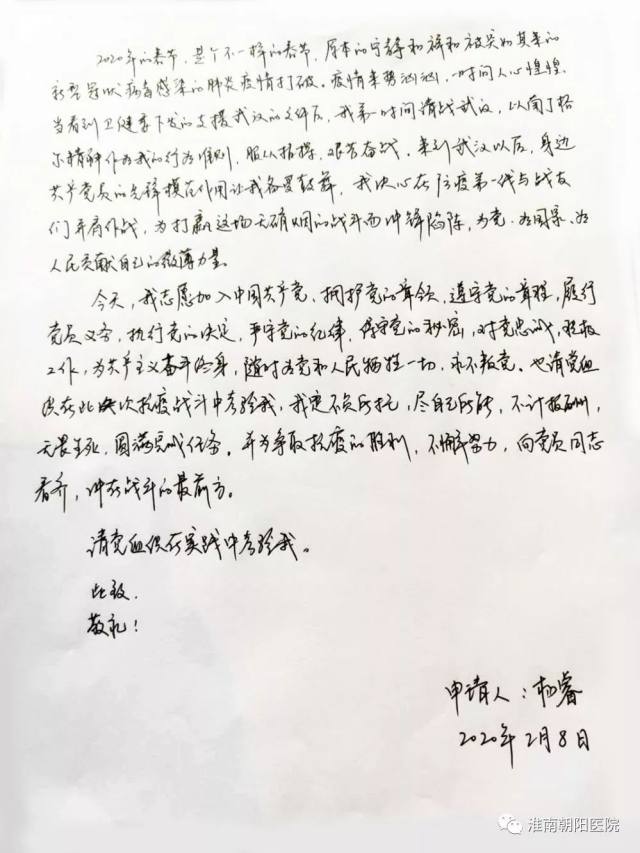 2020年的春节，是个不一样的春节，原本的宁静和祥和被突如其来的
新型冠状病毒感染的肺炎疫情打破。疫情来势汹汹，一时间人心惶惶。
当看到卫健委下发的支援武汉的文件后，我第一时间请战武汉，以南丁格
尔精神作为我的行为准则，服从指挥，艰苦奋战，来到武汉以后，身边
共产党员的先锋模范作用让我备受鼓舞，我决心在防疫第一线与战友
们并肩作战，为打赢这场无硝烟的战斗而冲锋陷阵，为党、为国家、为
人民贡献自己的微薄力量。
今天，我志愿加入中国共产党，拥护党的章领，遵守党的章程，履行
党员义务，执行党的决定，严守党的纪律，保守党的秘密，对党忠诚，积极
工作，为共产主义奋斗终身，随时为党和人民牺牲一切，永不叛党。也请党组
织在此次抗疫战斗中考验我，我定不负所托，尽自己所能，不计报酬，
无畏生死，圆满完成任务。并为争取抗疫的胜利，不懈努力，向党员同志
看齐，冲在战斗的最前方。
请党组织在实践中考验我。
此致.
敬礼！
申请人：杨睿
2020年2月8日
淮南朝阳医院